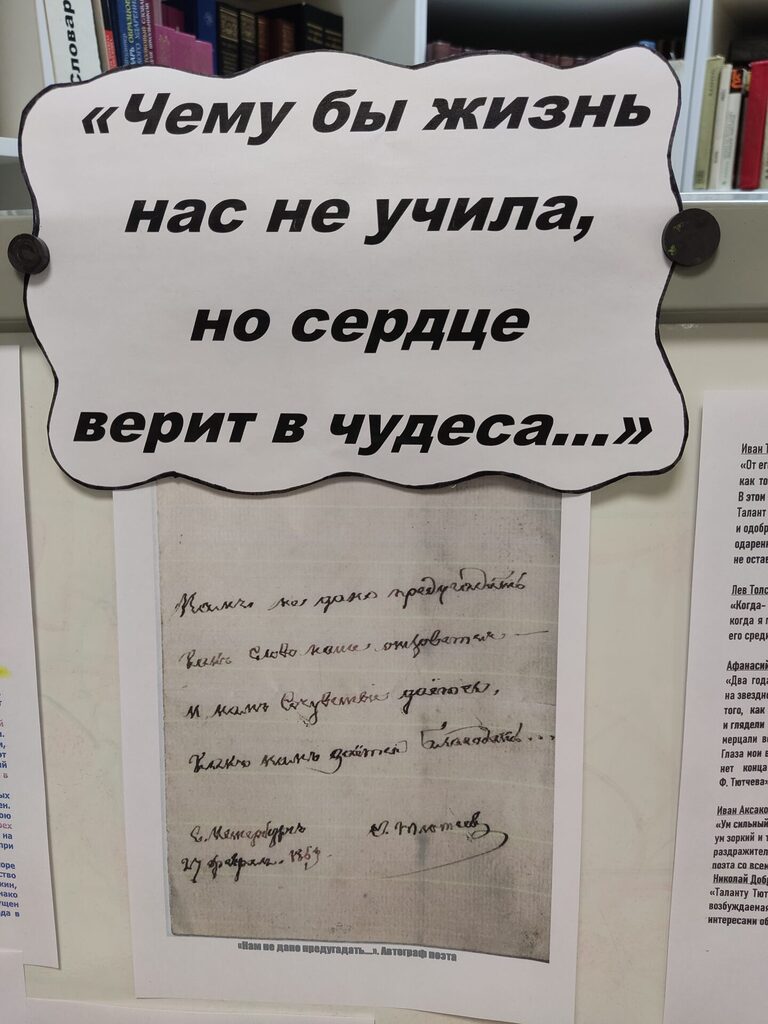 Словар
«Чему бы жизнь
нас не учила,
но сердце
верит в чудеса...»
Намъ не дано предугадать
Какъ слово наше отзовется —
И намъ сочувствіе дается,
Какъ намъ дается благодать...
С. Петербургъ
Ф. Тютчев
27 Феврал. 1869.
«Нам не дано предугадать...». Автограф поэта
Иван Т
«От ег
как то
В этом
Талант
и одобр
одарен
не остав
Лев Толс
«Когда-
когда я п
его среди
Афанасий
«Два года
на звездно
того, как
и глядели
мерцали в
Глаза мои в
нет конца
Ф. Тютчева»
Иван Аксако
«Ум сильный
ум зоркий и т
раздражител
поэта со всем
Николай Добр
«Таланту Тют
возбуждаемая
интересами об